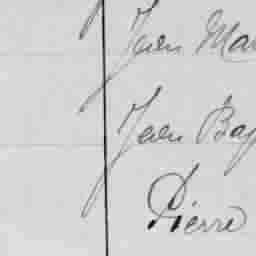 Jean Mar
Jean Bap
Pierre